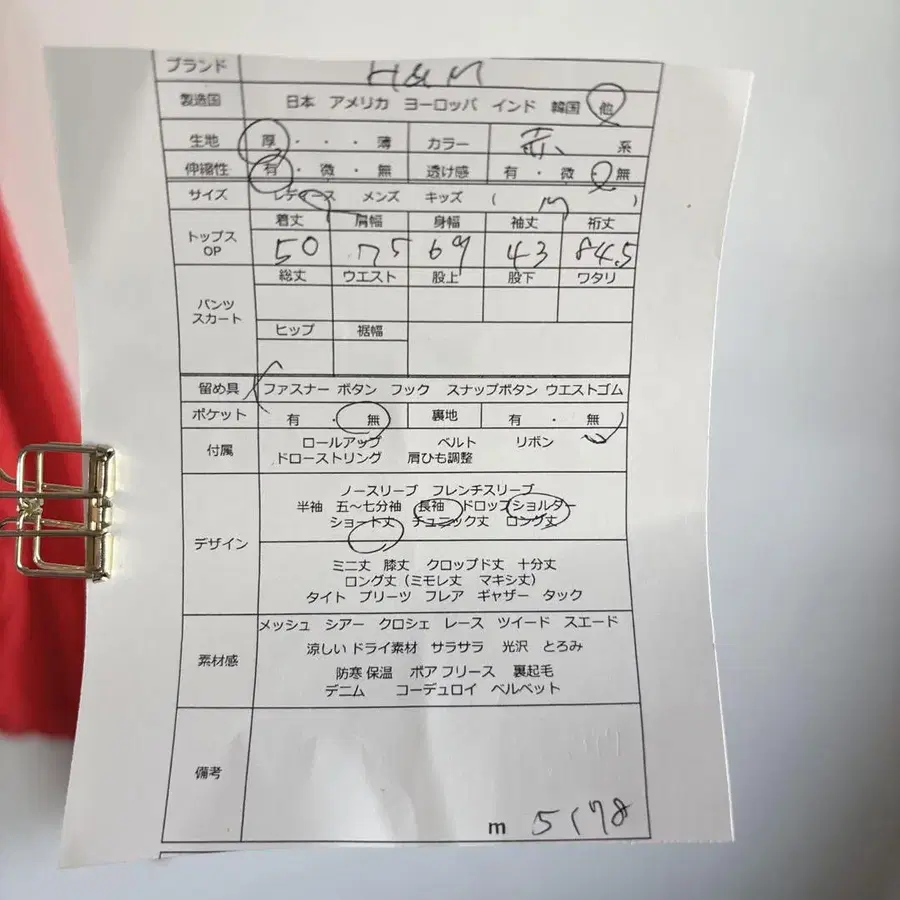 ブランド H&M
製造国 日本 アメリカ ヨーロッパ インド 韓国 他
生地 厚・・・薄 カラー 赤、 系
伸縮性 有・微・無 透け感 有・微・無
サイズ レディース メンズ キッズ ( M )
トップス OP 着丈 肩幅 身幅 袖丈 裄丈
50 75 69 43 84.5
パンツ スカート 総丈 ウエスト 股上 股下 ワタリ
ヒップ 裾幅
留め具 ファスナー ボタン フック スナップボタン ウエストゴム
ポケット 有・無 裏地 有・無
付属 ロールアップ ベルト リボン
ドローストリング 肩ひも調整
デザイン
ノースリーブ フレンチスリーブ
半袖 五～七分袖 長袖 ドロップショルダー
ショート丈 チュニック丈 ロング丈
ミニ丈 膝丈 クロップド丈 十分丈
ロング丈 (ミモレ丈 マキシ丈)
タイト プリーツ フレア ギャザー タック
素材感 メッシュ シアー クロシェ レース ツイード スエード
涼しい ドライ素材 サラサラ 光沢 とろみ
防寒 保温 ボア フリース 裏起毛
デニム コーデュロイ ベルベット
備考
m 5178